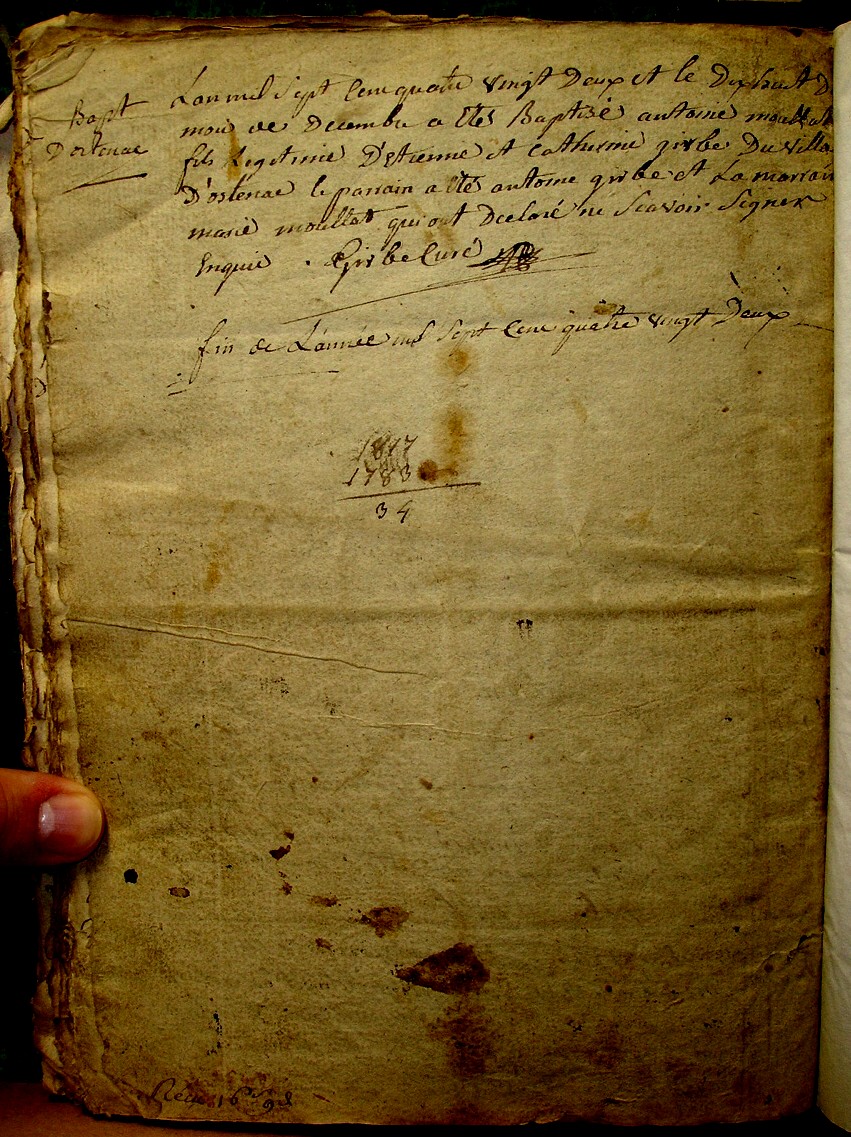 Bapt
D'ostenac
L'an mil Sept Cent quatre vingt Deux et le Dixhuit D
mois de Decembre a etté Baptisé antoine moullat
fils Legitime D'etienne et Catherine girbe Du villa
D'ostenac le parrain a etté antoine girbe et La marrain
marie moullat qui ont Declaré ne Scavoir Signer
Enquis . Girbe Curé
fin de L'année mil Sept Cent quatre vingt Deux
1817
1783
34
Reçu 16 s 9 d